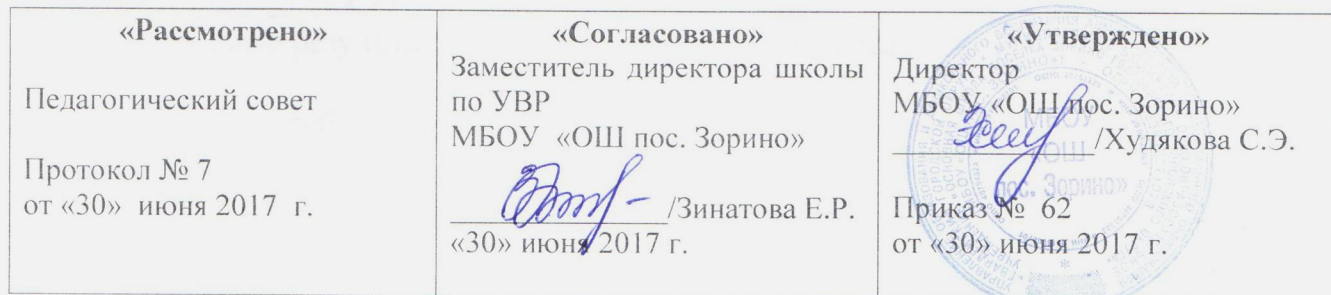 «Рассмотрено»
Педагогический совет
Протокол № 7
от «30» июня 2017 г.
«Согласовано»
Заместитель директора школы
по УВР
МБОУ «ОШ пос. Зорино»
/Зинатова Е.Р.
«30» июня 2017 г.
«Утверждено»
Директор
МБОУ «ОШ пос. Зорино»
/Худякова С.Э.
Приказ № 62
от «30» июня 2017 г.
МБОУ
«ОШ
пос. Зорино»